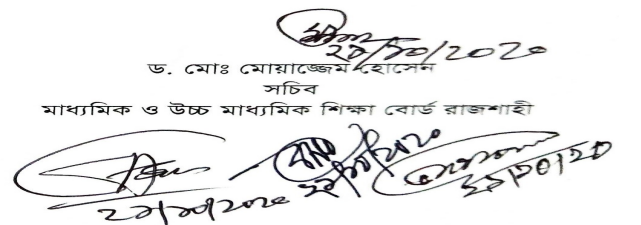 ২৯/১০/২০২০
ড. মোঃ মোয়াজ্জেম হোসেন
সচিব
মাধ্যমিক ও উচ্চ মাধ্যমিক শিক্ষা বোর্ড রাজশাহী
২৯/১০/২০২০ ২৯/১০/২০২০ ২৯/১০/২০